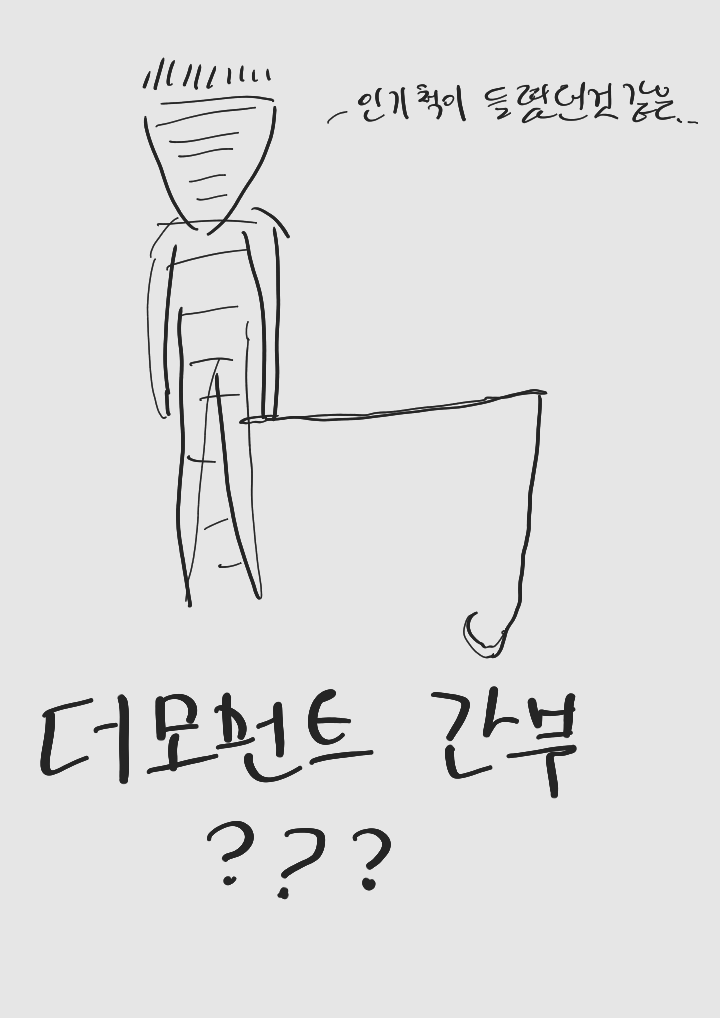 인기척이 들렸던것 같은...
더모먼트 간부
???